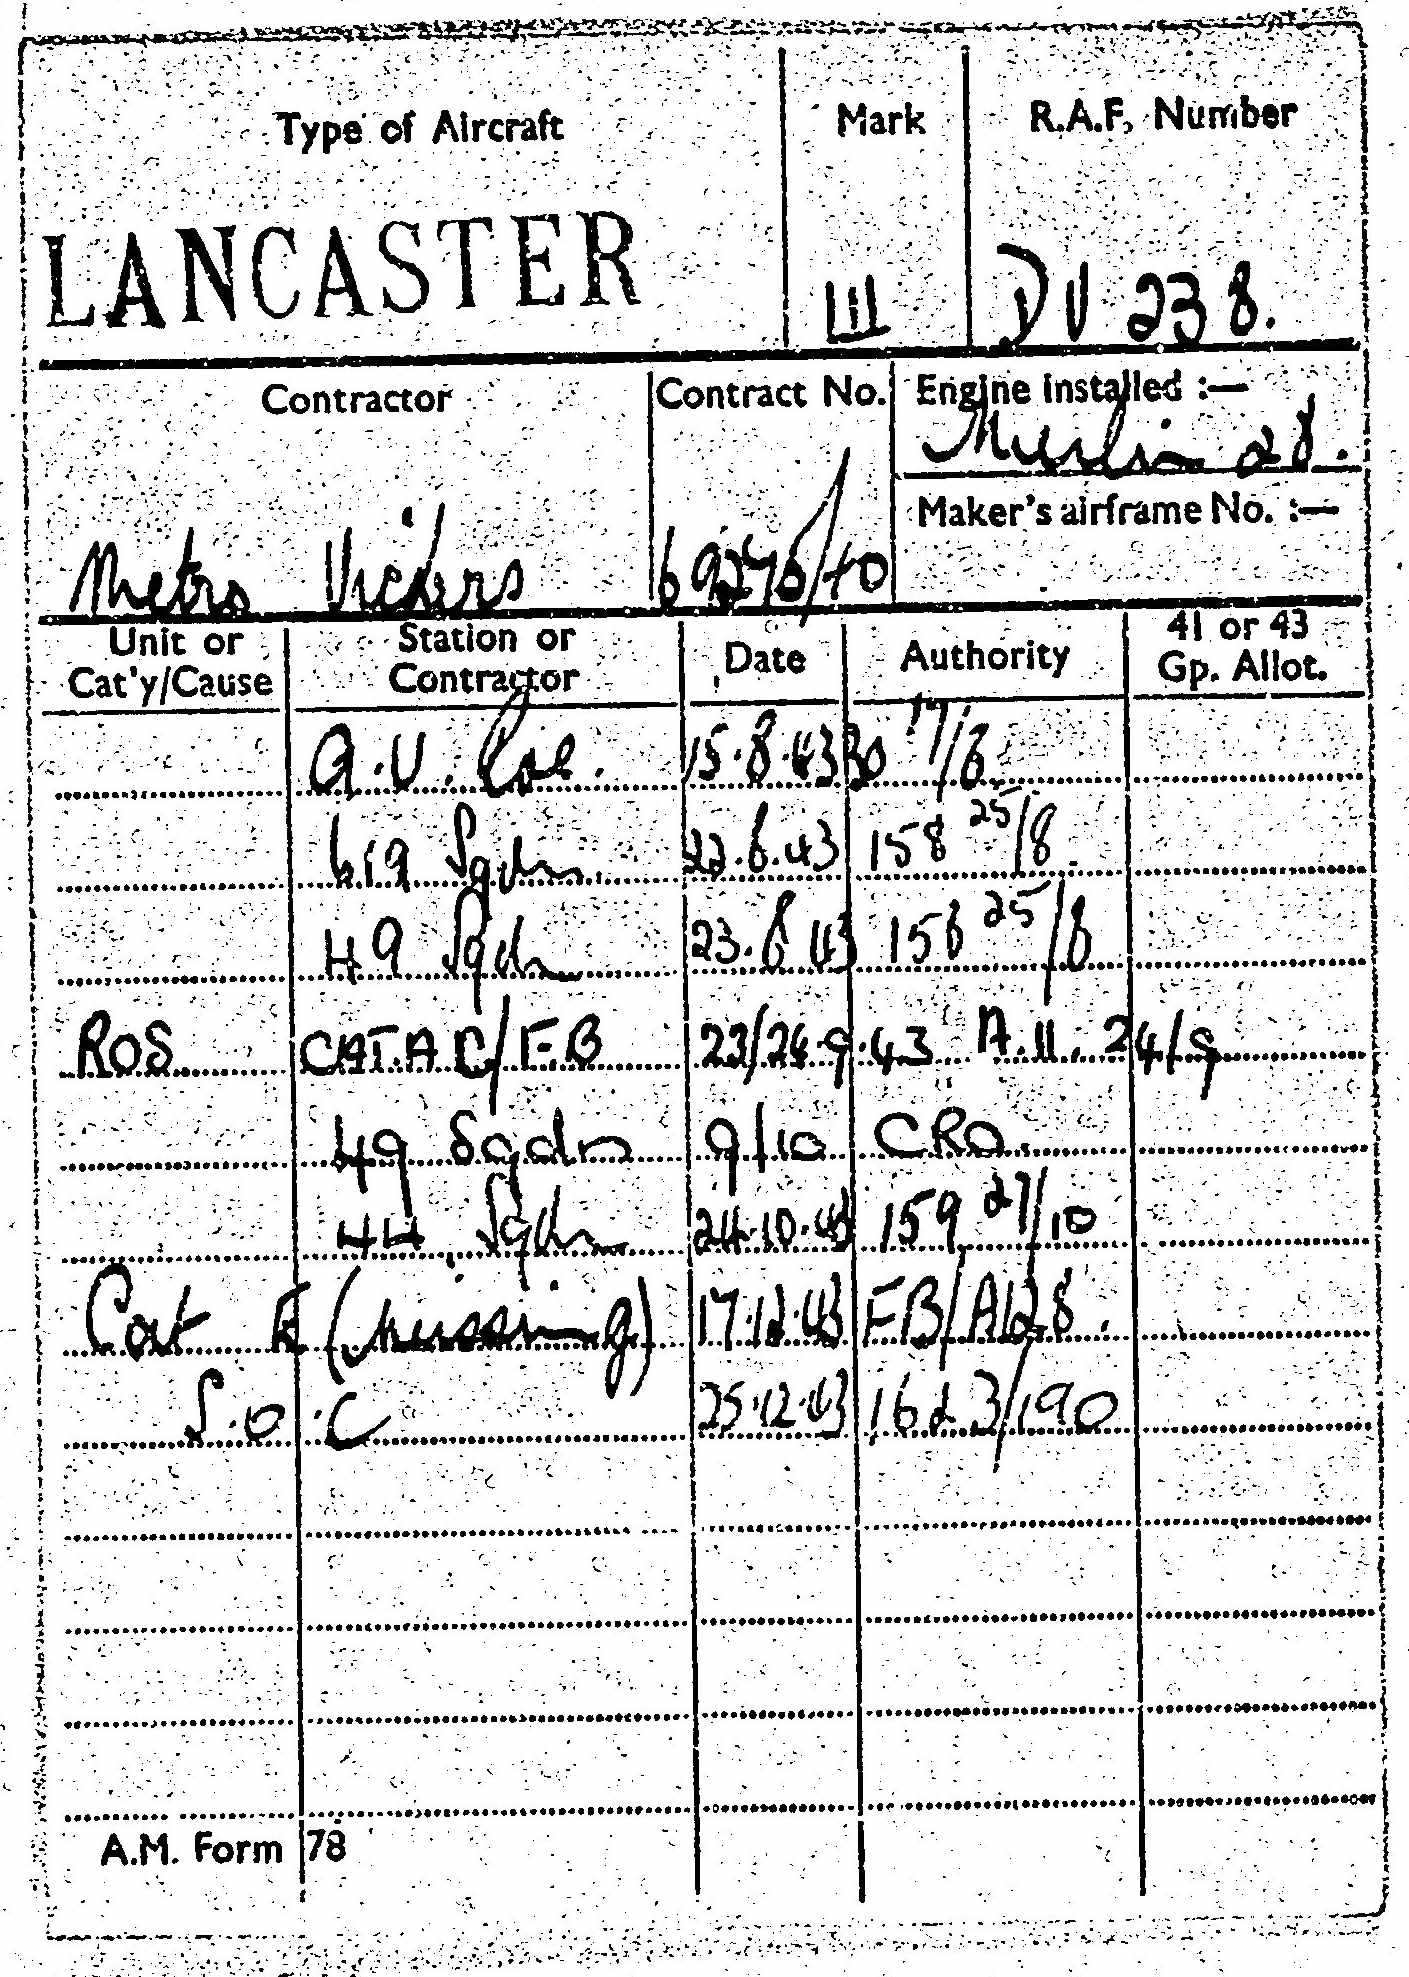 Type of Aircraft Mark R.A.F. Number
LANCASTER III DV 238.
Contractor Contract No. Engine installed :—
Merlin 28.
Maker's airframe No. :—
Metro Vickers 69275/40
Unit or Cat'y/Cause Station or Contractor Date Authority 41 or 43 Gp. Allot.
A.V. Roe. 15.8.43 17/8
619 Sqdn 22.8.43 158 25/8
49 Sqdn 23.8.43 158 25/8
ROS CAT.A.C/F.B 23/24.9.43 A.11. 24/9
49 Sqdn 9/10 CRO.
44 Sqdn 24.10.43 159 27/10
Cat E (missing) 17.12.43 FB/A128.
S.O.C 25.12.43 162 3/190
A.M. Form 78